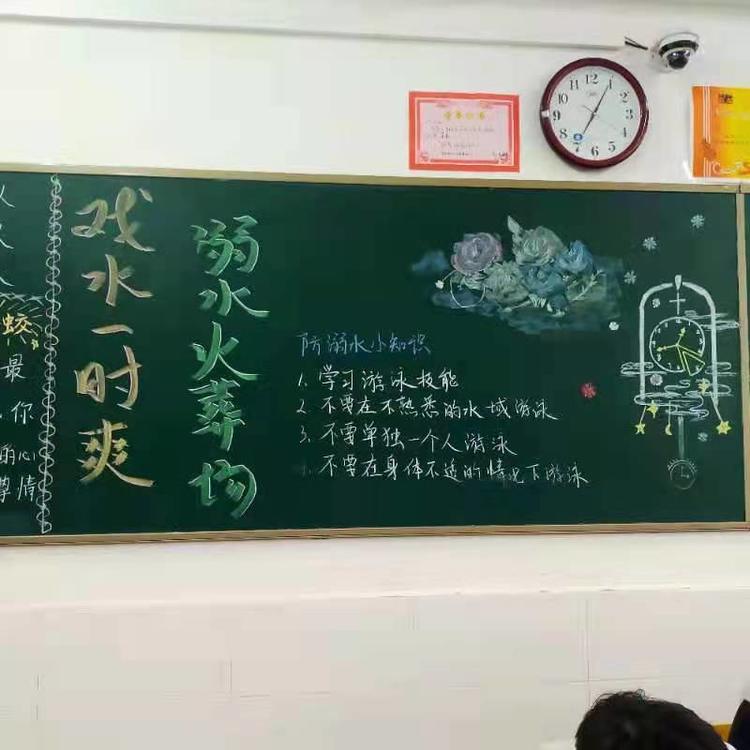 戏水一时爽
溺水火葬场
防溺水小知识
1. 学习游泳技能
2. 不要在不熟悉的水域游泳
3. 不要单独一个人游泳
不要在身体不适的情况下游泳
蛟
最
你
的心
情
12
1
2
3
4
5
6
7
8
9
10
11